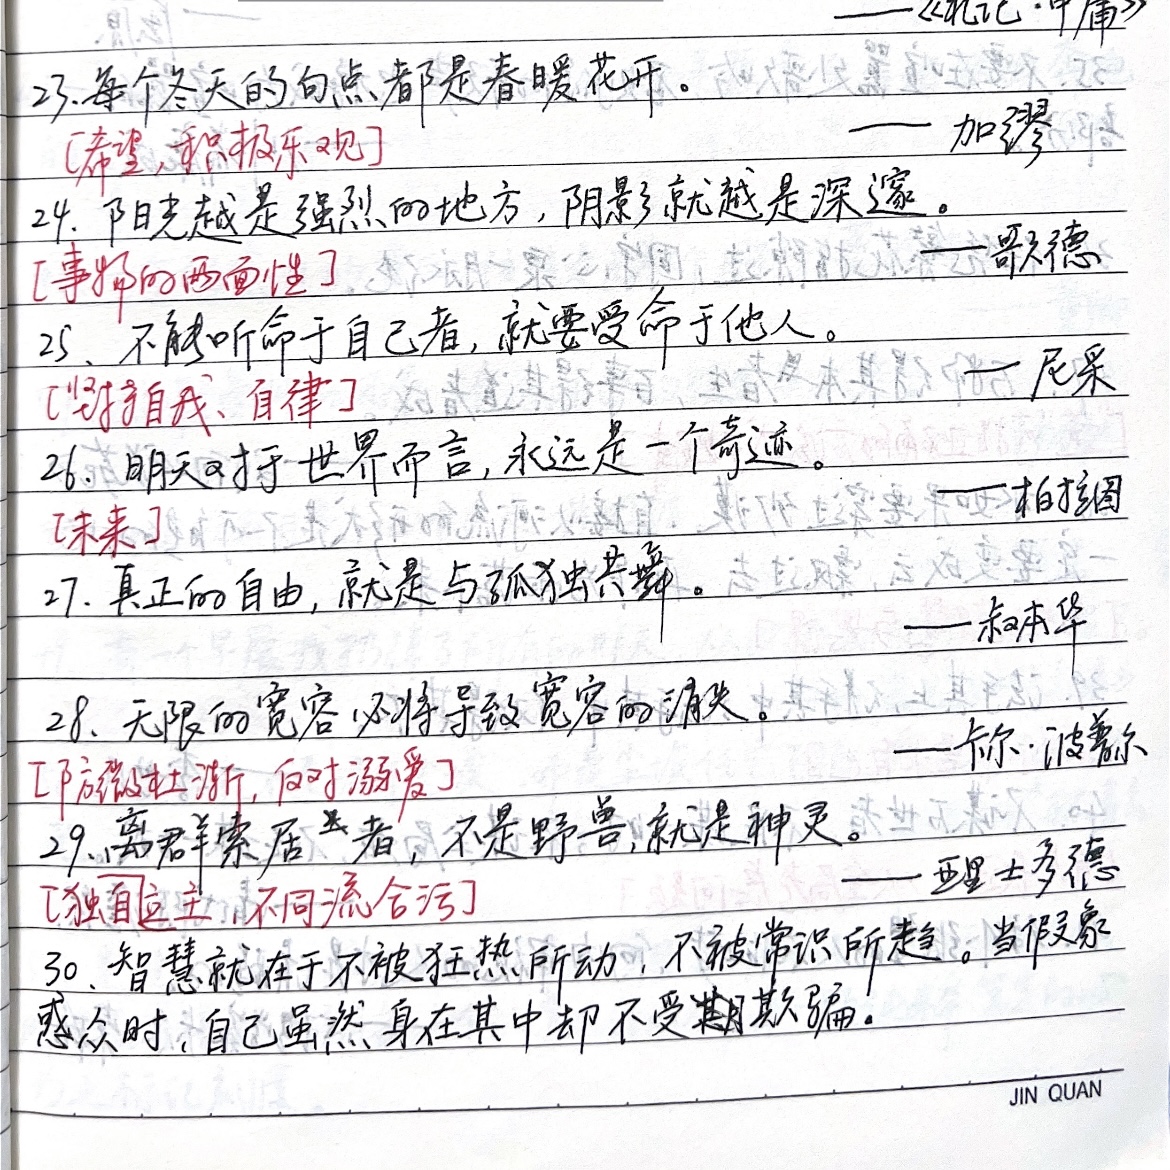 ——《礼记·中庸》
23.每个冬天的句点都是春暖花开。
——加缪
[希望,积极乐观]
24.阳光越是强烈的地方,阴影就越是深邃。
——歌德
[事物的两面性]
25、不能听命于自己者,就要受命于他人。
—尼采
[坚持自我、自律]
26、明天对于世界而言,永远是一个奇迹。
——柏拉图
[未来]
27、真正的自由,就是与孤独共舞。
——叔本华
28、无限的宽容必将导致宽容的消失。
——卡尔·波普尔
[防微杜渐,反对溺爱]
29、离群索居者,不是野兽,就是神灵。
——亚里士多德
[独自立主,不同流合污]
30、智慧就在于不被狂热所动,不被常识所趋。当假象
惑众时,自己虽然身在其中却不受欺骗。
JIN QUAN